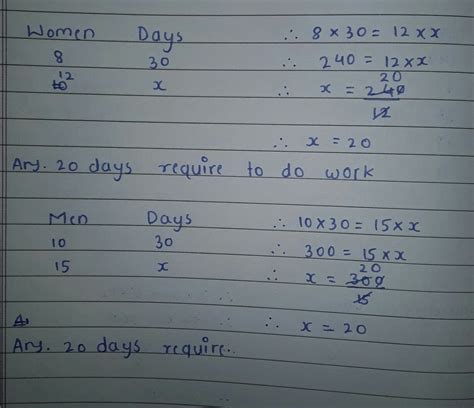 Women Days ∴ 8 × 30 = 12 × x
8 30 ∴ 240 = 12 × x
12 x ∴ x = 240 20
12
∴ x = 20
Ans. 20 days require to do work
Men Days ∴ 10 × 30 = 15 × x
10 30 ∴ 300 = 15 × x
15 x ∴ x = 300 20
15
A ∴ x = 20
Ans. 20 days require..